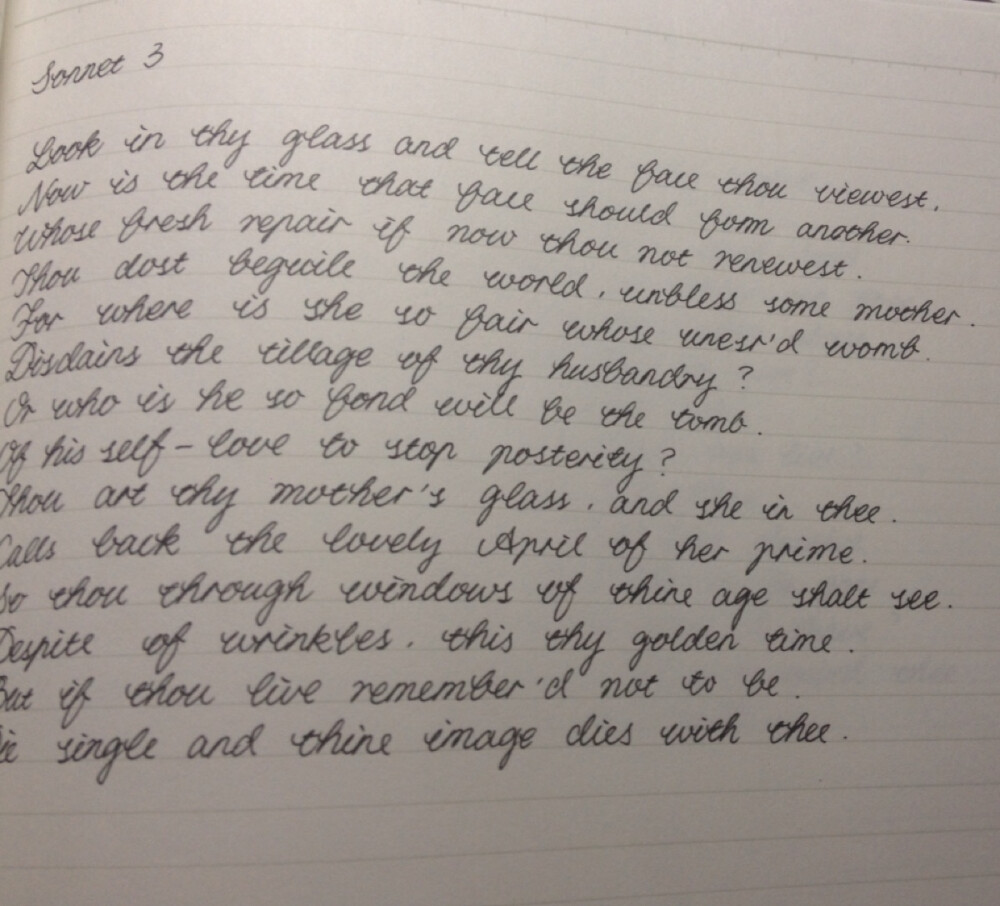 Sonnet 3
Look in thy glass and tell the face thou viewest.
Now is the time that face should form another.
Whose fresh repair if now thou not renewest.
Thou dost beguile the world. unbless some mother.
For where is she so fair whose unear'd womb.
Disdains the tillage of thy husbandry?
Or who is he so fond will be the tomb.
Of his self-love to stop posterity?
Thou art thy mother's glass. and she in thee.
Calls back the lovely April of her prime.
So thou through windows of thine age shalt see.
Despite of wrinkles. this thy golden time.
But if thou live remember'd not to be.
Die single and thine image dies with thee.